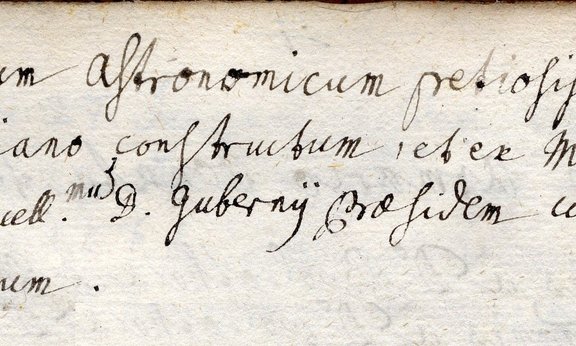 um Astronomicum pretiosis
iano constructum, et ex M
cell.mus D. Gubernij Præsidem co
um.